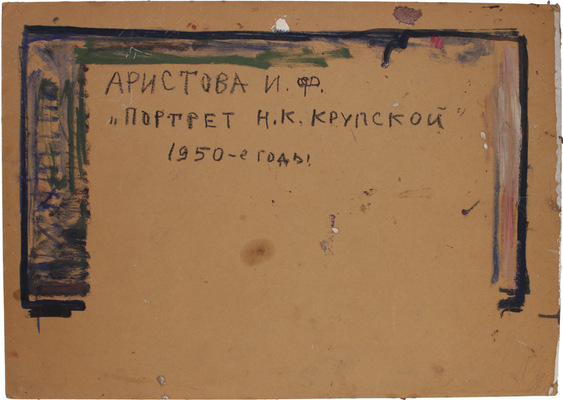 АРИСТОВА И.Ф.
„ПОРТРЕТ Н.К.КРУПСКОЙ"
1950-е годы